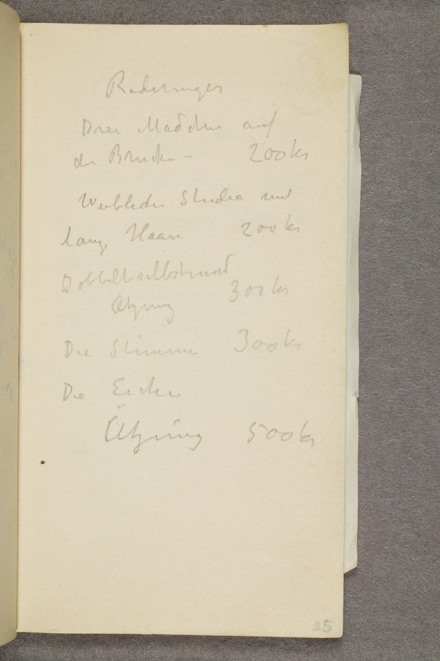 Raderungen
Drei Mädchen auf
der Brücke – 200 kr
Weibliche Studie mit
lange Haar 200 kr
Dobbeltselbstmord
Ätzung 300 kr
Die Stimme 300 kr
Die Eiche
Ätzung 500 kr
25